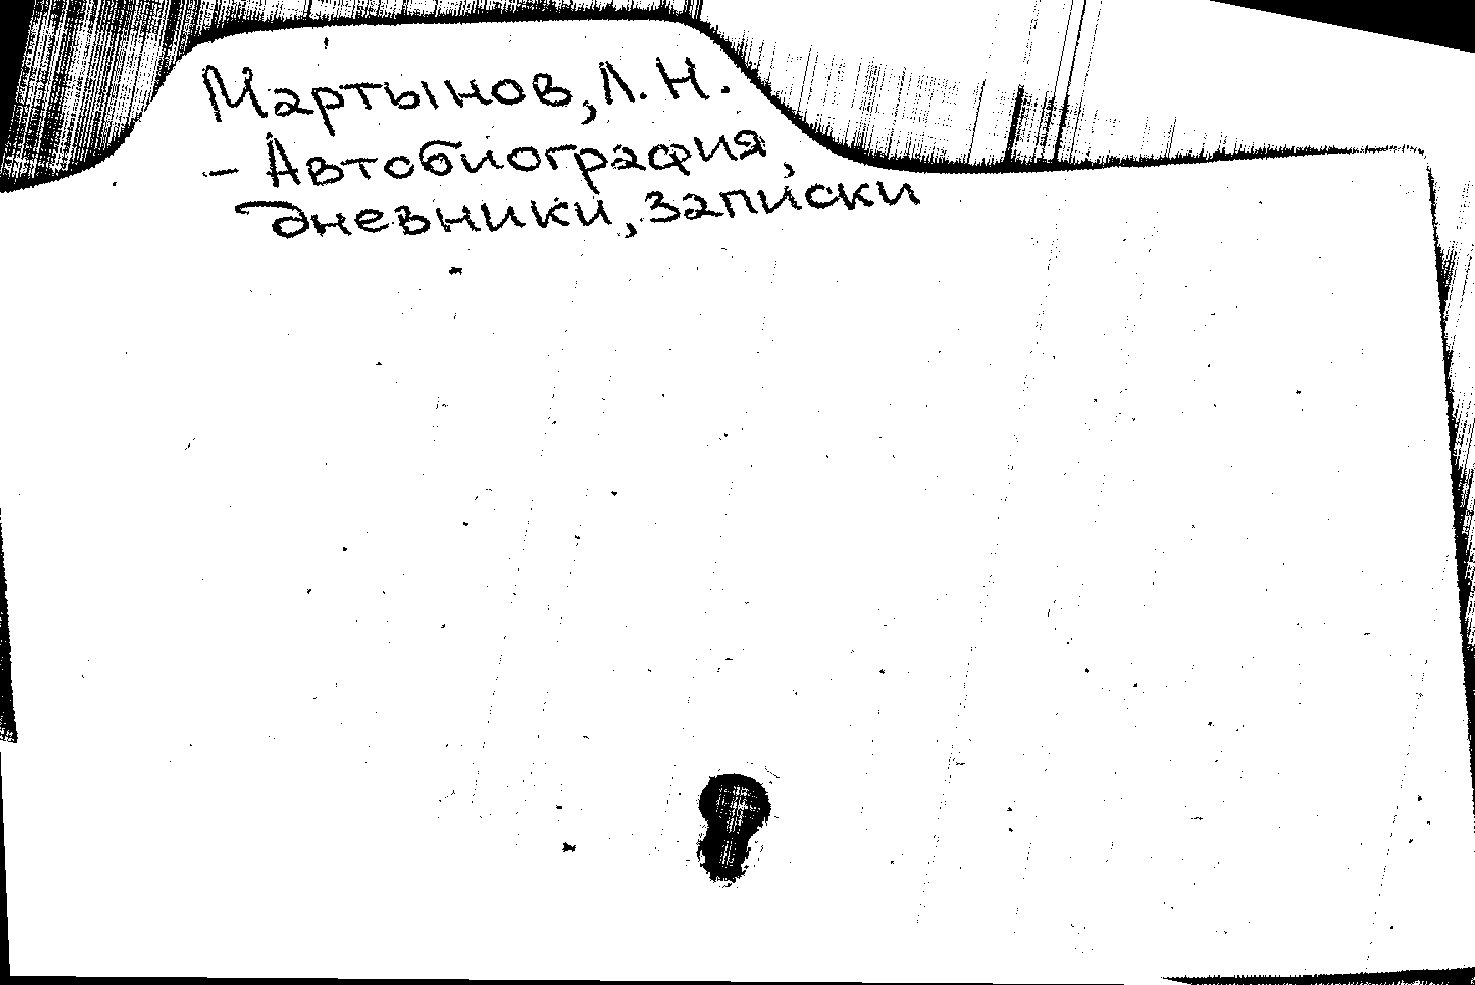 Мартынов, Л. Н.
- Автобиография,
дневники, записки